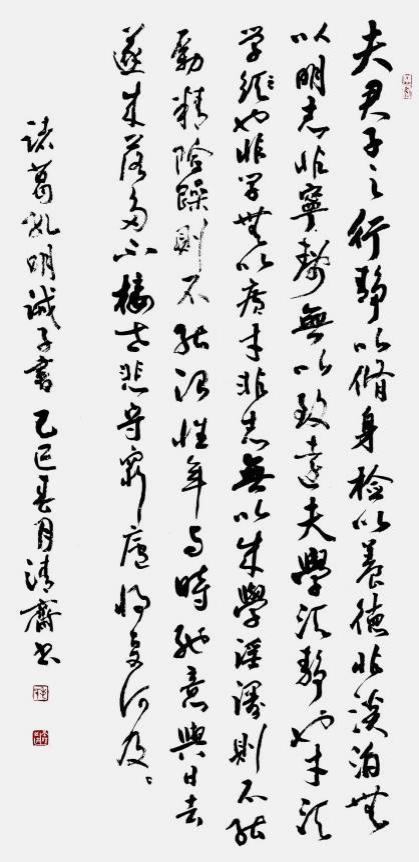 夫君子之行静以脩身检以養德非淡泊無
以明志非寧静無以致遠夫學須静也才須
学須也非学無以廣才非志無以成學淫漫則不能
勵精險躁則不能治性年与時馳意與日去
遂成落多不接世悲守窮廬将復何及
诸葛孔明诫子書 乙巳春月清齋书